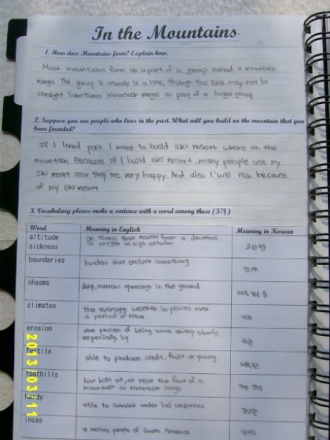 In the Mountains
1. How does Mountains form? Explain how.
Most mountains form as a part of a group called a mountain
range. The group is usually in a line, though the line may not be
straight. Sometimes mountain ranges are part of a larger group
2. Suppose you are people who lives in the past. What will you build on the mountain that you
have founded?
If I lived past I want to build ski resort where on the
mountain. Because if I build ski resort, many people use my
ski resort and they are very happy. And also I will rich because
of my ski resort
3. Vocabulary please make a sentence with a word among these (3개)
Word Meaning in English Meaning in Korean
altitude sickness an illness that results from a decrease
in oxygen at high altitude 고산병
boundaries borders that enclose something 경계
chasms deep, narrow openings in the ground
climates the average weather in places over
a period of time 기후
erosion the process of being worn away slowly,
especially by
fertile able to produce seeds, fruit or young
foothills low hills at, or near the foot of a
mountain or mountain range
hardy able to survive under bad conditions
incas a native people of South America
2023 03 11